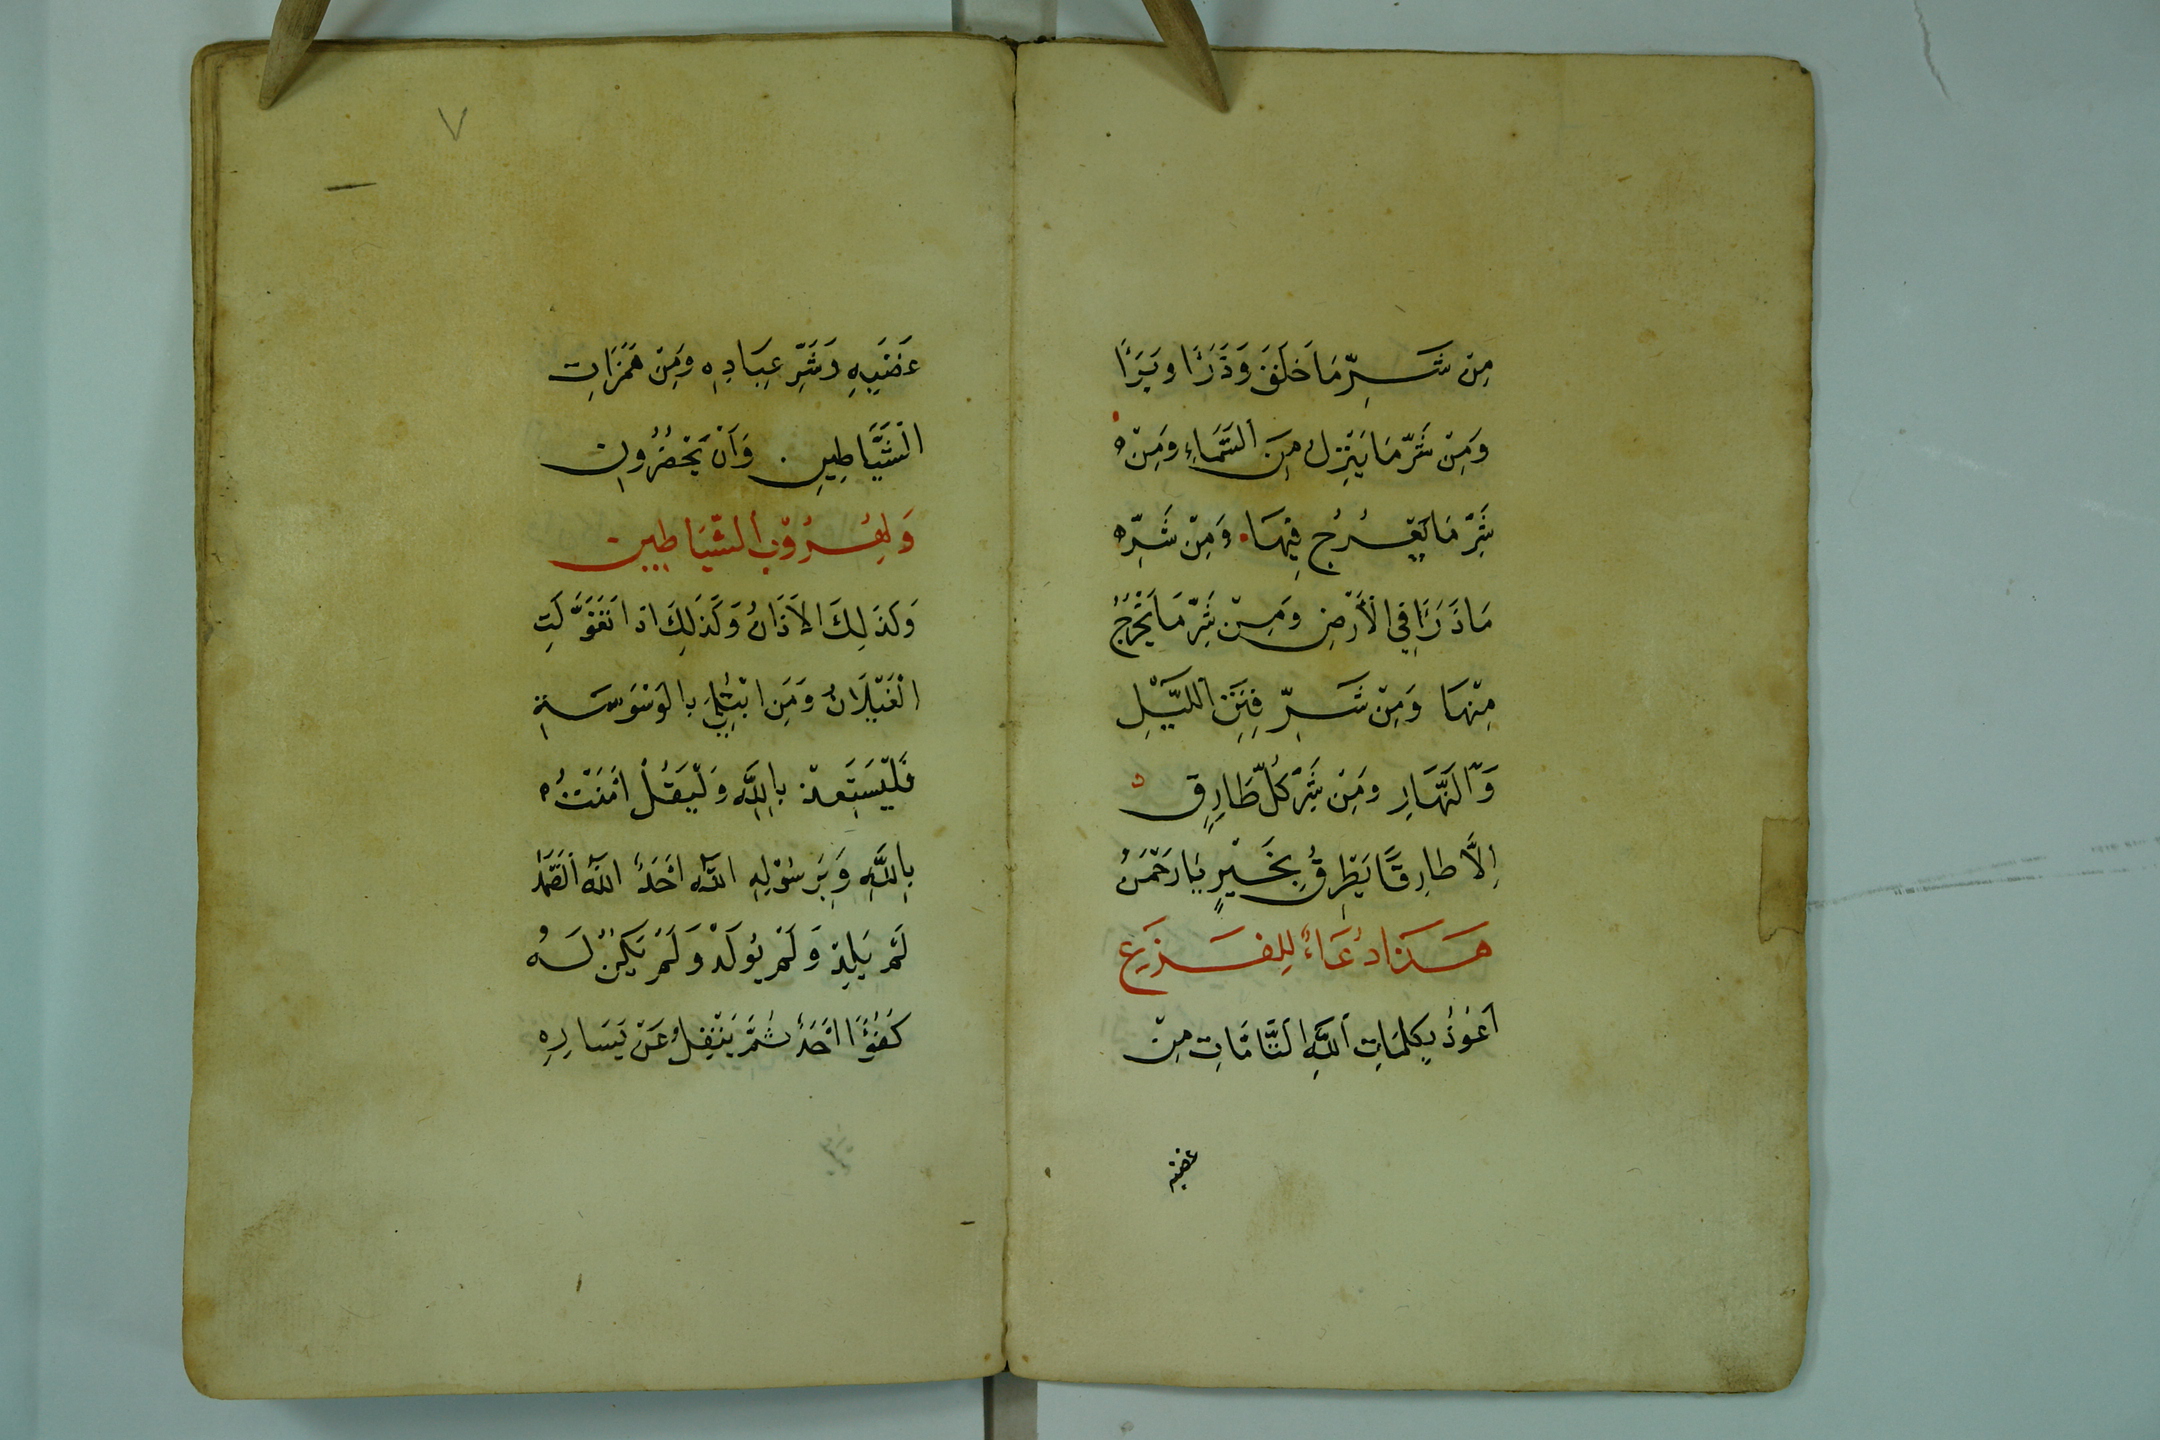 مِنْ شَرِّ مَا خَلَقَ وَذَرَأَ وبَرَأَ
وَمِنْ شَرِّ مَا يَنْزِلُ مِنَ السَّمَاءِ وَمِنْ
شَرِّ مَا يَعْرُجُ فِيْهَا وَمِنْ شَرِّ
مَا ذَرَأَ فِي الْأَرْضِ وَمِنْ شَرِّ مَا يَخْرُجُ
مِنْهَا وَمِنْ شَرِّ فِتَنِ اللَّيْلِ
وَالنَّهَارِ وَمِنْ شَرِّ كُلِّ طَارِقٍ
اِلَّا طارِقًا يَطْرِقُ بِخَيْرٍ يَا رَحْمَنُ
هَذَا دُعَاءٌ لِلفَزَعِ
اَعُوْذُ بِكلِمَاتِ اللَّهِ التَّامَّاتِ مِنْ
غضبه
٧
غَضَبِهِ وَشَرِّ عِبَادِهِ وَمِنْ هَمَزَاتِ
الْشَّيَاطِيِنِ . وَاَنْ يَحْضُرُونِ
وَلِهُرُوْبِ الشَّيَاطِيِن
وَكَذَلِكَ الاَذَانُ وَكَذَلِكَ اذا تَغَوَّلَتِ
الْغَيْلَانُ وَمَنِ ابْتُلِيَ بالوَسْوَسَةِ
فَلْيَسْتَعِذْ بِاللَّهِ وَلْيَقُلْ اٰمَنْتُ
بِاللَّهِ وَبِرَسُوْلِهِ اللّٰه اَحَدٌ اللّٰه الصَّمَدُ
لَمْ يَلِدْ وَلَمْ يُوْلَدْ وَلَمْ يَكُنْ لَهُ
كُفُؤًا اَحَدٌ ثُمَّ يَتْفِلُ عَنْ يَسَارِهِ